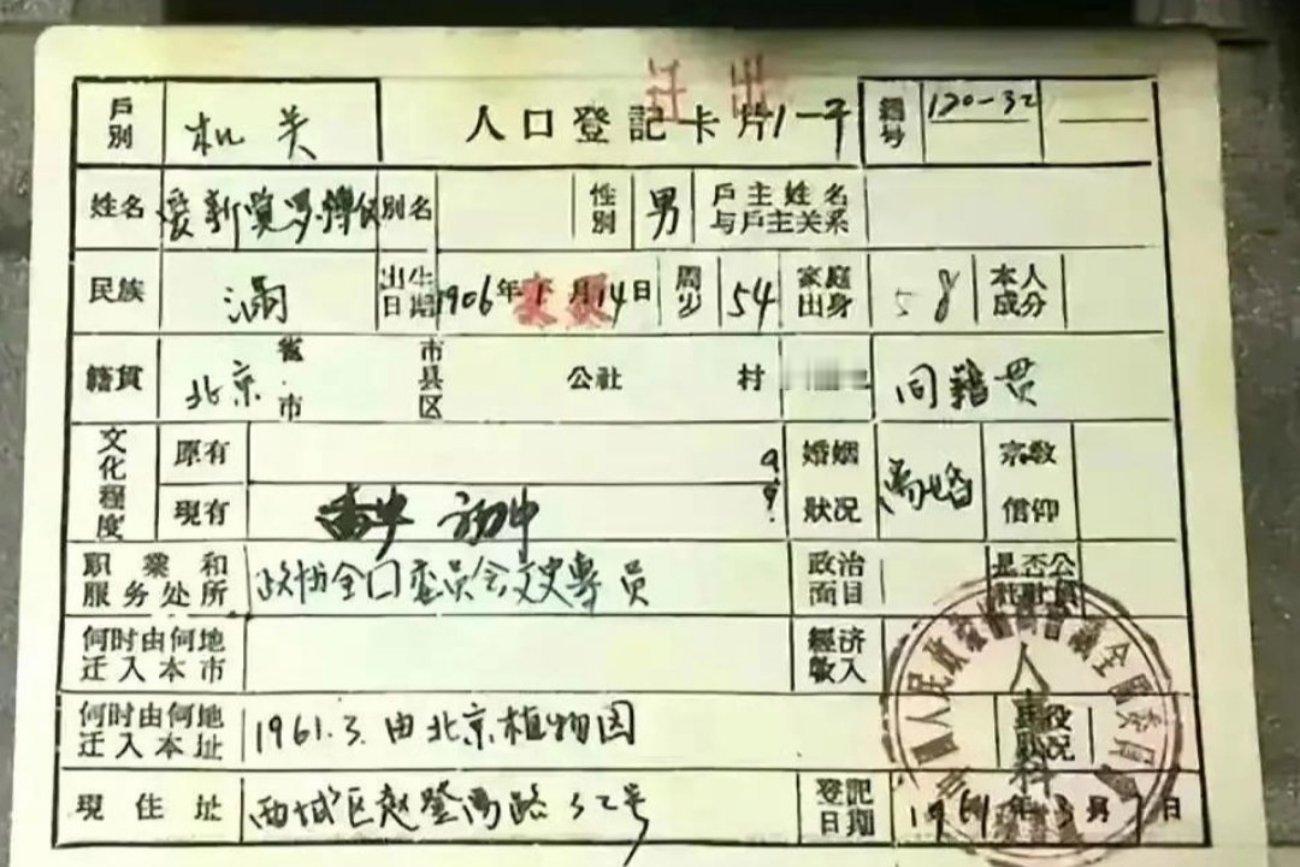 迁出
户别 机关 人口登記卡片 编号 120-32
姓名 爱新觉罗·溥仪 别名 性别 男 戶主姓名与戶主关系
民族 滿 出生日期 1906年 月14日 周岁 54 家庭出身 58 本人成分
籍貫 北京 省市 市县区 公社 村 同籍贯
文化程度 原有 婚姻狀况 离婚 宗教信仰
現有 高中 初中
职业和服务处所 政协全囗委员会文史專员 政治面目 是否公
何时由何地迁入本市 經济收入
何时由何地迁入本址 1961.3.由北京植物园
現住址 西城区赵登禹路32号 登記日期 1961年3月7日